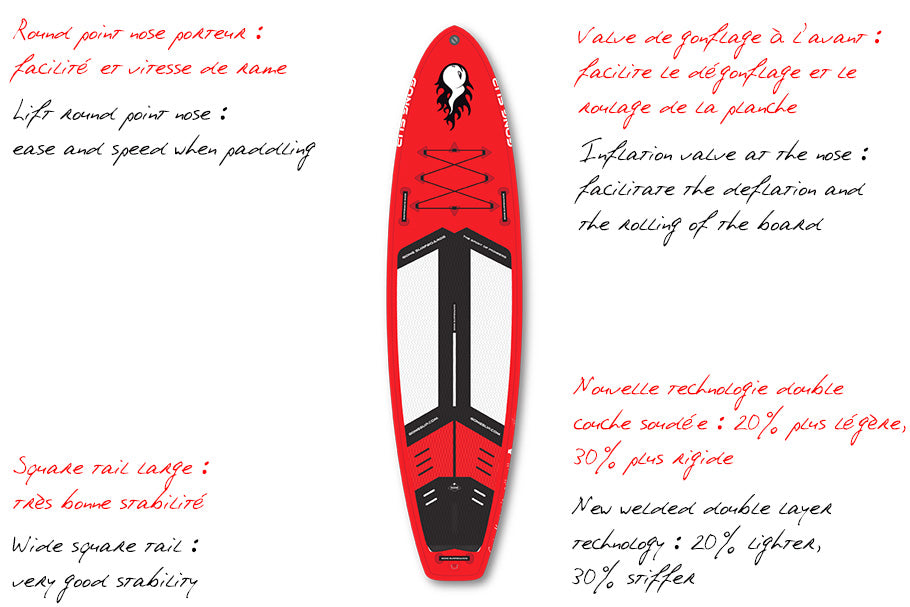 Round point nose porteur :
facilité et vitesse de rame
Lift round point nose :
ease and speed when paddling
Valve de gonflage à l'avant :
facilite le dégonflage et le
roulage de la planche
Inflation valve at the nose :
facilitate the deflation and
the rolling of the board
GONG SUP
GONG SUP
GONG SURFBOARDS
THE SPIRIT OF PROGRESS
GONGSUP.COM
GONGSUP.COM
Square tail large :
très bonne stabilité
Wide square tail :
very good stability
Nouvelle technologie double
couche soudée : 20% plus légère,
30% plus rigide
New welded double layer
technology : 20% lighter,
30% stiffer
GONG SURFBOARDS